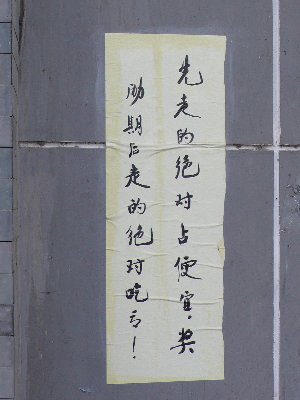 先走的绝对占便宜.奖
励期后走的绝对吃亏！